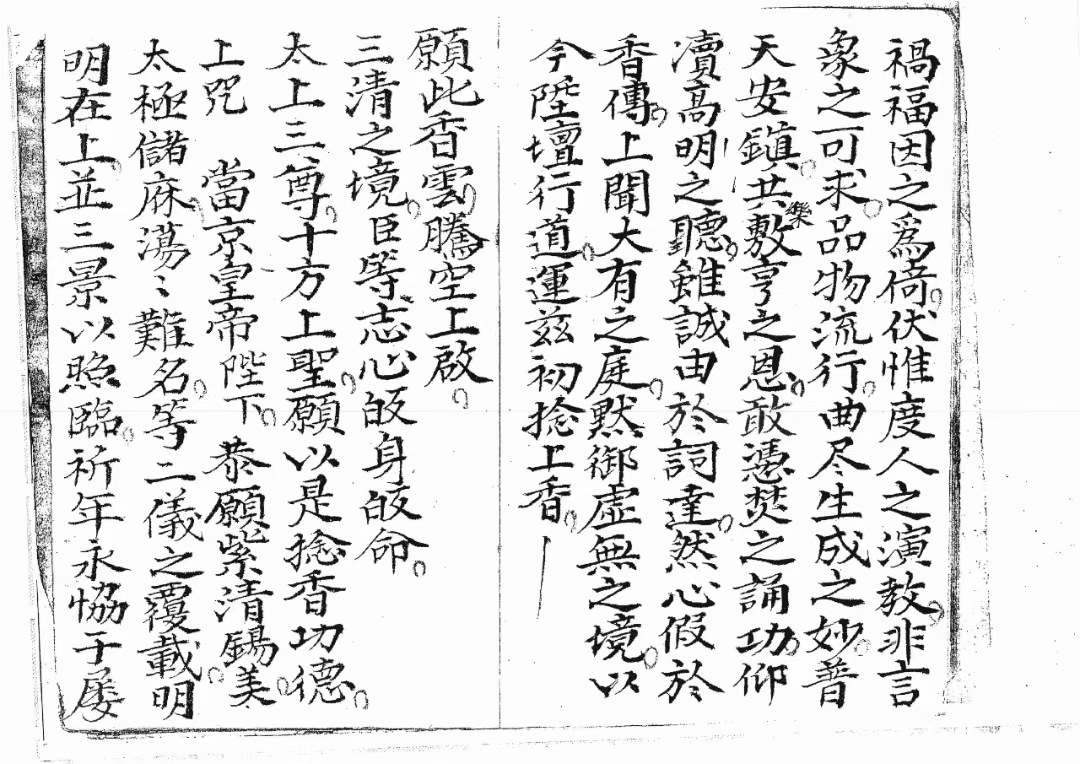 禍福因之爲倚伏惟度人之演教非言
象之可求品物流行曲尽生成之妙普
天安鎮共敷樂亨之恩敢憑焚之誦功仰
凟高明之聽雖誠由於詞達然心假於
香傳上聞大有之庭黙御虛無之境以
今陞壇行道運兹初捻上香
願此香雲騰空上啟
三清之境臣等志心皈身皈命
太上三尊十方上聖願以是捻香功德
上咒 當京皇帝陛下 恭願紫清錫美
太極儲麻蕩〻難名等二儀之覆載明
明在上並三景以照臨祈年永恊于屡